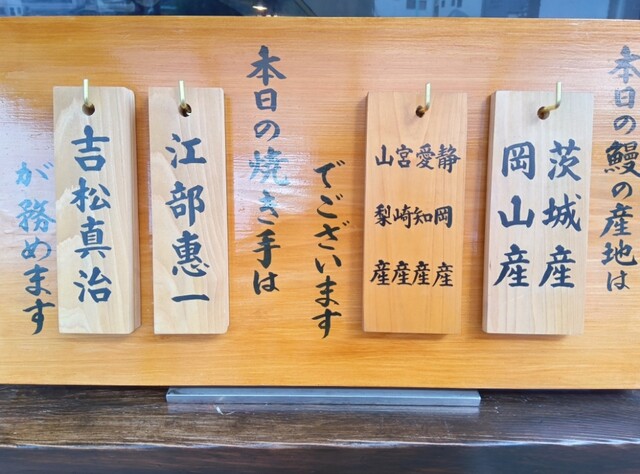 本日の鰻の産地は
茨城産
岡山産
静岡産
愛知産
宮崎産
山梨産
でございます
本日の焼き手は
江部惠一
吉松真治
が務めます